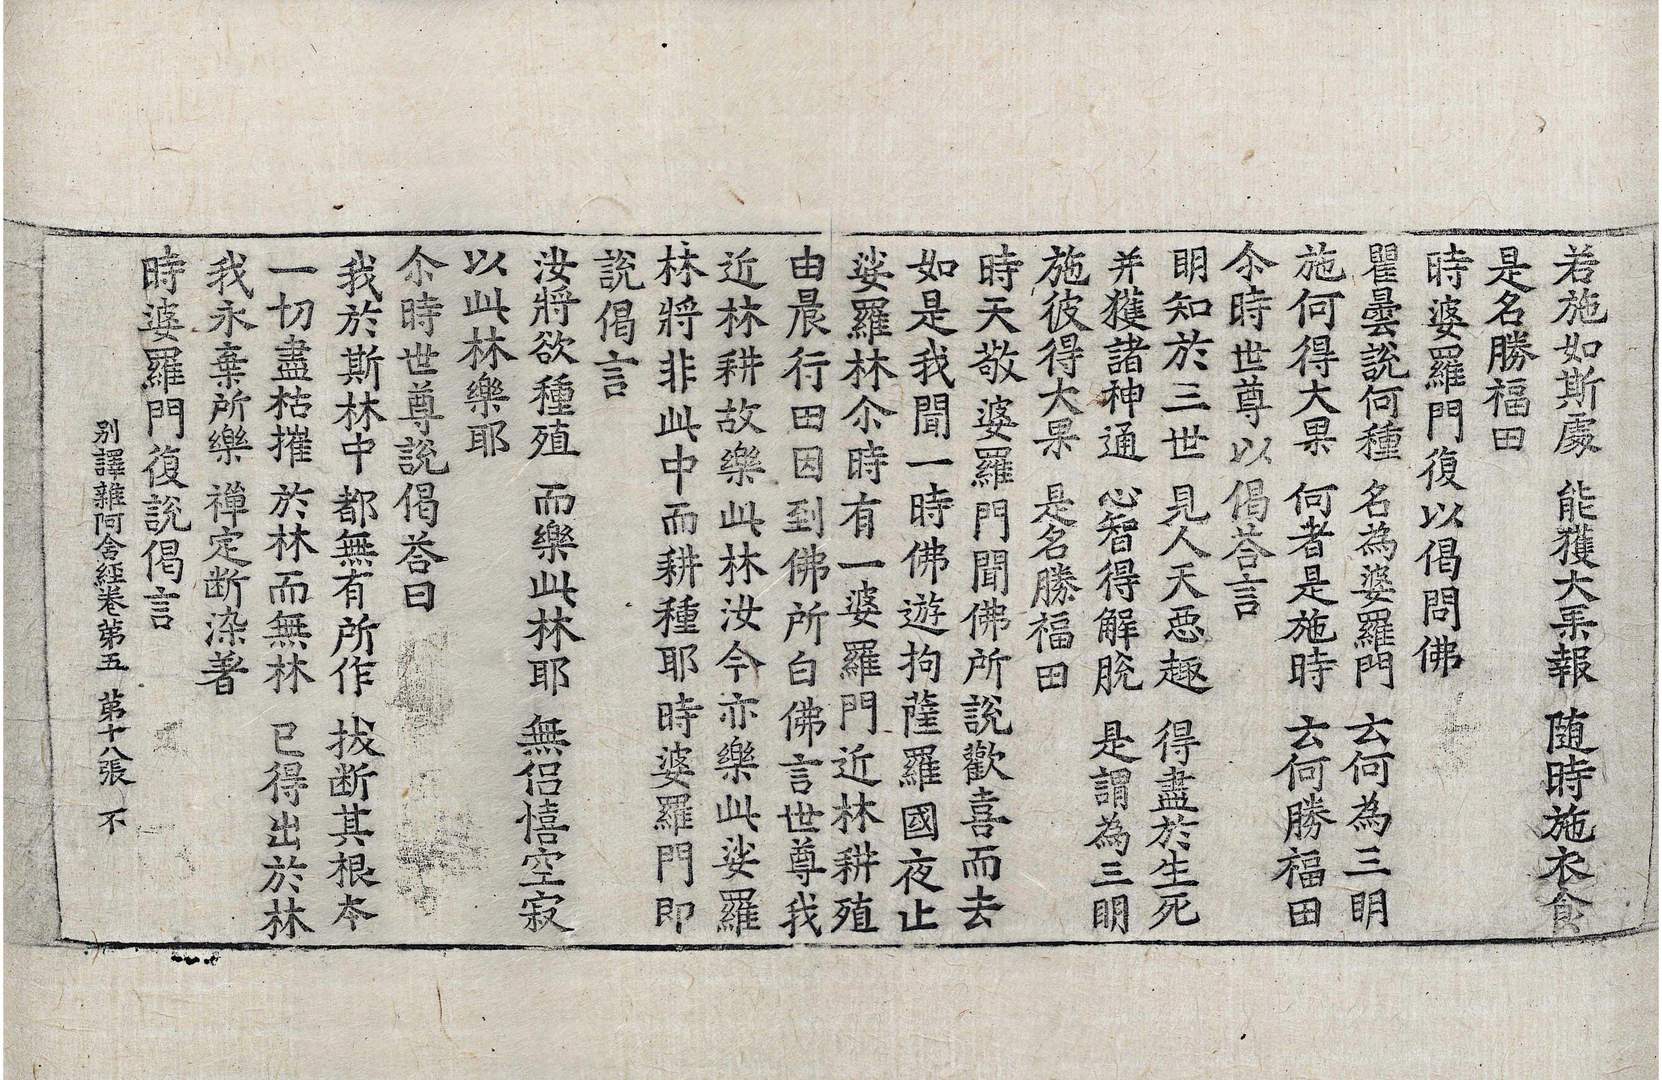 若施如斯處　能獲大果報　随時施衣食
是名勝福田
時婆羅門復以偈問佛
瞿曇說何種　名為婆羅門　云何為三明
施何得大果　何者是施時　云何勝福田
尒時世尊以偈荅言
明知於三世　見人天惡趣　得盡於生死
并獲諸神通　心智得解脫　是謂為三明
施彼得大果　是名勝福田
時天敬婆羅門聞佛所說歡喜而去
如是我聞一時佛遊拘薩羅國夜止
娑羅林尒時有一婆羅門近林耕殖
由晨行田因到佛所白佛言世尊我
近林耕故樂此林汝今亦樂此娑羅
林將非此中而耕種耶時婆羅門即
說偈言
汝將欲種殖　而樂此林耶　無侶憘空寂
以此林樂耶
尒時世尊說偈荅曰
我於斯林中　都無有所作　拔断其根夲
一切盡枯摧　於林而無林　已得出於林
我永棄所樂　禅定断染著
時婆羅門復說偈言
別譯雜阿含經卷第五　第十八張　不